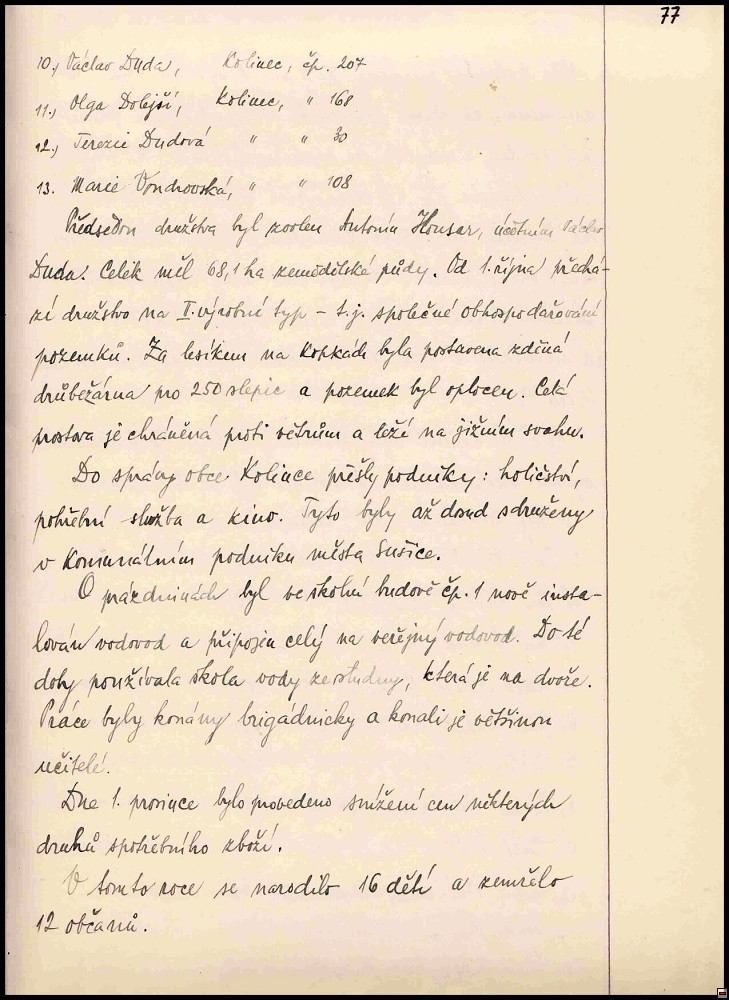 77
10., Václav Duda, Kolinec, čp. 207
11., Olga Dolejší, Kolinec, " 168
12., Terezie Dudová " " 30
13. Marie Vondrovská, " " 108
Předsedou družstva byl zvolen Antonín Housar, účetním Václav
Duda. Celek měl 68,1 ha zemědělské půdy. Od 1. října přechá-
zí družstvo na II. výrobní typ - t.j. společné obhospodařování
pozemků. Za lesíkem na Kopkách byla postavena zděná
drůbežárna pro 250 slepic a pozemek byl oplocen. Celá
prostora je chráněná proti větrům a leží na jižním svahu.
Do správy obce Kolince přešly podniky: holičství,
pohřební služba a kino. Tyto byly až dosud sdruženy
v Komunálním podniku města Sušice.
O prázdninách byl ve školní budově čp. 1 nově insta-
lován vodovod a připojen celý na veřejný vodovod. Do té
doby používala škola vody ze studny, která je na dvoře.
Práce byly konány brigádnicky a konali je většinou
učitelé.
Dne 1. prosince bylo provedeno snížení cen některých
druhů spotřebního zboží.
V tomto roce se narodilo 16 dětí a zemřelo
12 občanů.